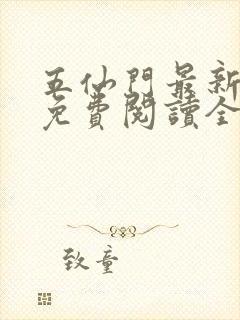 五仙門最新
免費閱讀全
致童